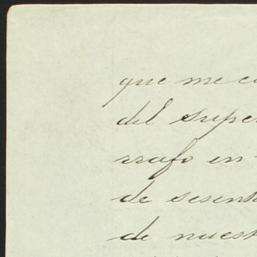 que me co
del supe
rrafo en
de sesent
de nuest